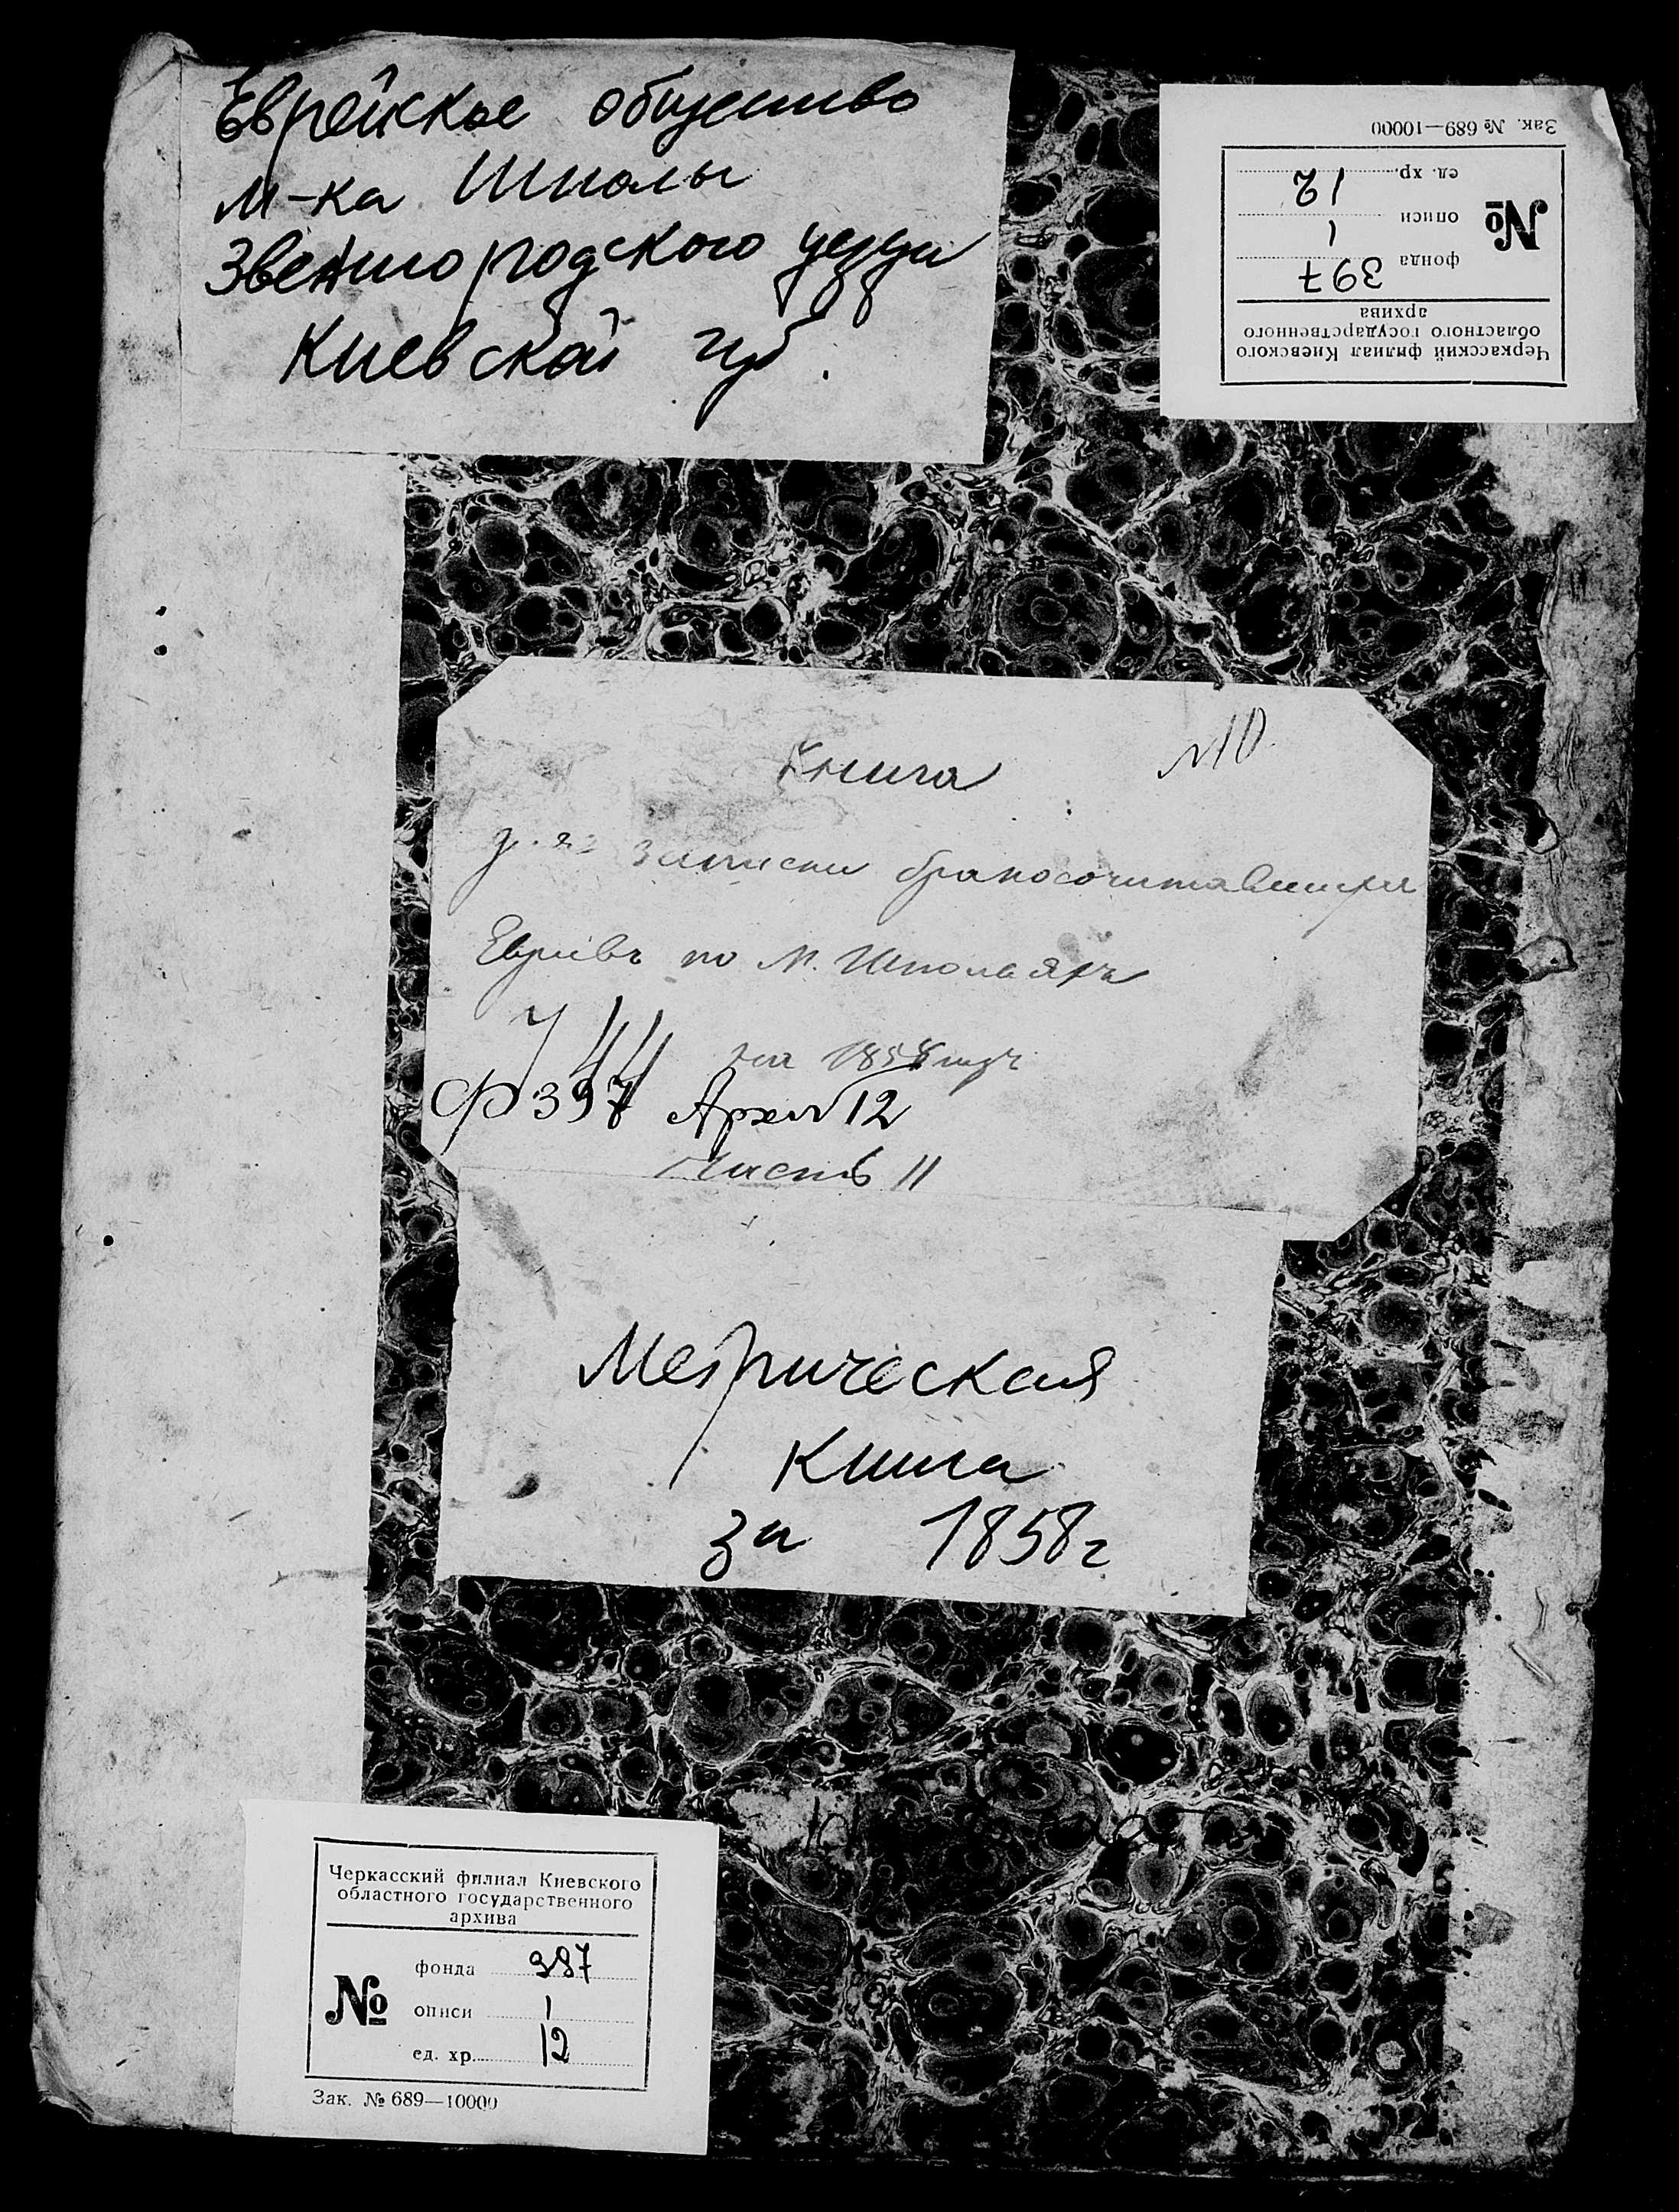 Еврейское общество
м-ка Шполы
Звенигородского уезда
Киевской губ.
Зак. № 689—10000
Черкасский филиал Киевского
областного государственного
архива
№
фонда 397
описи 1
ед. хр. 12
Книга №10.
для записки бракосочитавшихся
Евреевъ по М.
на 1858 годъ
Ф 397 Арх№12
Часть II
Метрическая
Книга
за 1858г
Черкасский филиал Киевского
областного государственного
архива
№
фонда 397
описи 1
ед. хр. 12
Зак. № 689—10000